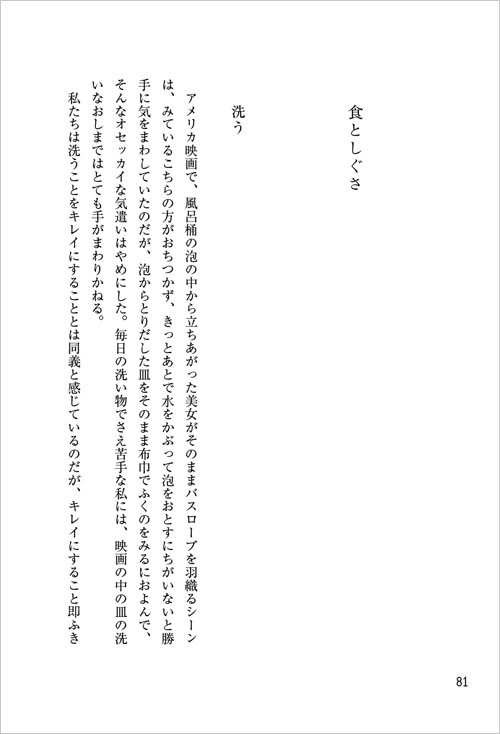 食としぐさ
洗う
アメリカ映画で、風呂桶の泡の中から立ちあがった美女がそのままバスローブを羽織るシーン
は、みているこちらの方がおちつかず、きっとあとで水をかぶって泡をおとすにちがいないと勝
手に気をまわしていたのだが、泡からとりだした皿をそのまま布巾でふくのをみるにおよんで、
そんなオセッカイな気遣いはやめにした。毎日の洗い物でさえ苦手な私には、映画の中の皿の洗
いなおしまではとても手がまわりかねる。
私たちは洗うことをキレイにすることとは同義と感じているのだが、キレイにすること即ふき
81